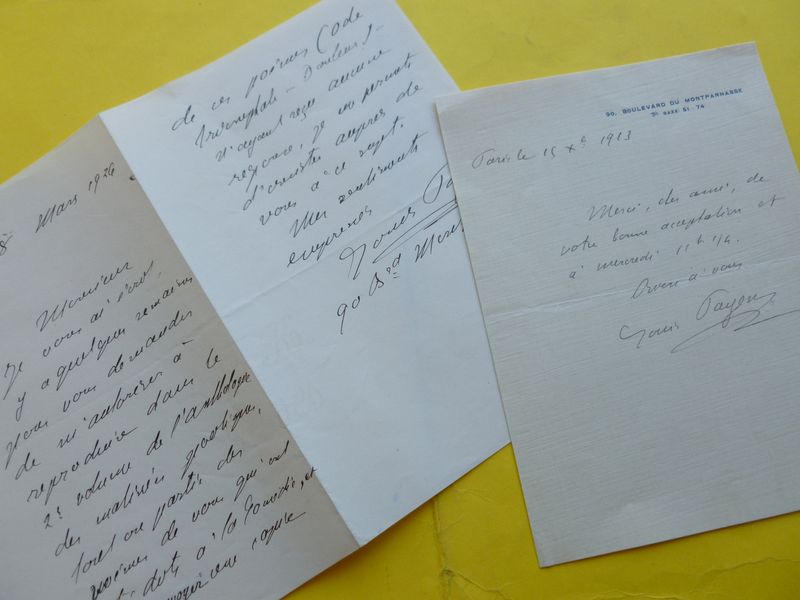 8 Mars 1926
Monsieur
Je vous ai écrit,
y a quelques semaines
pour vous demander
de m'autoriser à
reproduire dans le
2e volume de l'anthologie
des matinées poétiques,
tout ou partie des
poèmes de vous qui ont
dits à la Comédie, et
une copie
de ces poèmes (Ode
triomphale - Douleur) -
N'ayant reçu aucune
réponse, je me permets
d'insister auprès de
vous à ce sujet.
Mes sentiments
empressés
Louis Pa
90 Bd Mont
90, BOULEVARD DU MONTPARNASSE
SAXE 51 74
Paris le 15 Xe 1913
Merci, cher ami, de
votre bonne acceptation et
à mercredi 11h 1/4.
à vous
Louis Payen